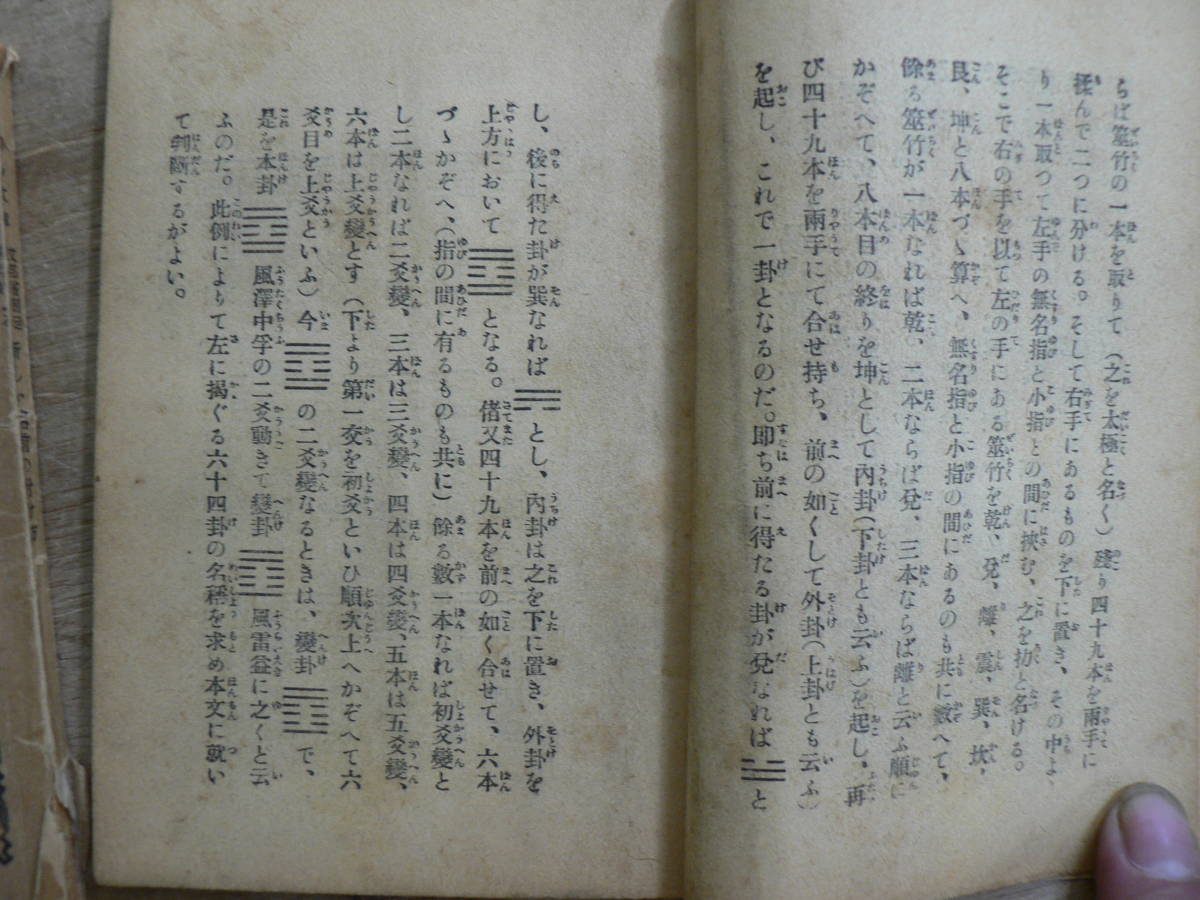 らば筮竹の一本を取りて（之を太極と名く）殘り四十九本を兩手に
揉んで二つに分ける。そして右手にあるものを下に置き、その中よ
り一本取つて左手の無名指と小指との間に挾む、之を扐と名ける。
そこで右の手を以て左の手にある筮竹を乾、兌、離、震、巽、坎、
艮、坤と八本づゝ算へ、無名指と小指の間にあるのも共に數へて、
餘る筮竹が一本なれば乾、二本ならば兌、三本ならば離と云ふ順に
かぞへて、八本目の終りを坤として內卦（下卦とも云ふ）を起し、再
び四十九本を兩手にて合せ持ち、前の如くして外卦（上卦とも云ふ）
を起し、これで一卦となるのだ。卽ち前に得たる卦が兌なれば☱と
し、後に得た卦が巽なれば☴とし、內卦は之を下に置き、外卦を
上方において䷼となる。偖又四十九本を前の如く合せて、六本
づゝかぞへ、（指の間に有るものも共に）餘る數一本なれば初爻變と
し二本なれば二爻變、三本は三爻變、四本は四爻變、五本は五爻變、
六本は上爻變とす（下より第一爻を初爻といひ順次上へかぞへて六
爻目を上爻といふ）今䷼の二爻變なるときは、變卦䷩で、
是を本卦䷼風澤中孚の二爻動きて變卦䷩風雷益に之くと云
ふのだ。此例によりて左に揭ぐる六十四卦の名稱を求め本文に就い
て判斷するがよい。